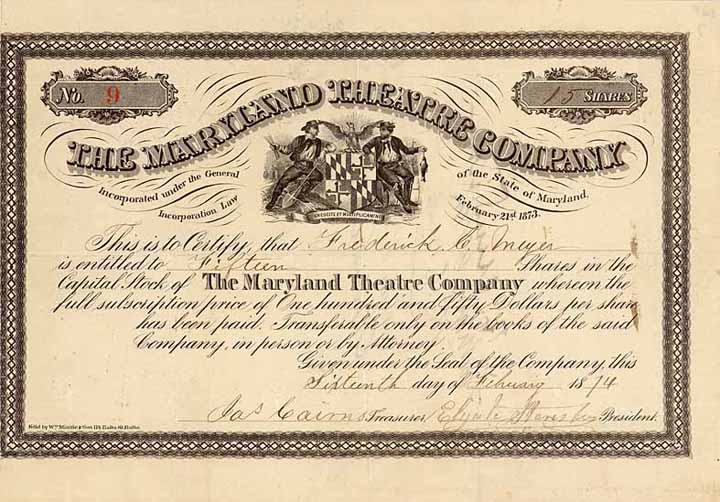 No. 9
15 SHARES
THE MARYLAND THEATRE COMPANY
Incorporated under the General
Incorporation Law
of the State of Maryland.
February 21st 1873.
CRESCITE ET MULTIPLICAMINI
This is to Certify, that Frederick C. Meyer
is entitled to Fifteen Shares in the
Capital Stock of The Maryland Theatre Company whereon the
full subscription price of One hundred and fifty Dollars per share
has been paid. Transferable only on the books of the said
Company, in person or by Attorney.
Given under the Seal of the Company, this
Sixteenth day of February 1874
Jas Cairns Treasurer President.
Sold by Wm Minifie & Son 114 Balto. St. Balto.